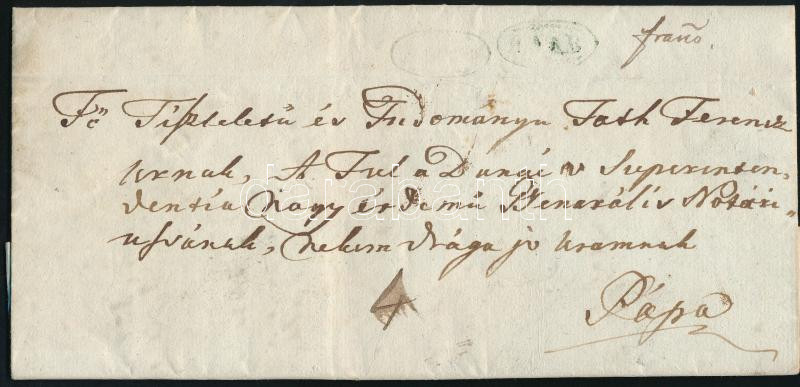 RAAB
franco.
Fő Tiszteletű és Tudományu Toth Ferencz
Urnak, A Tul a Dunai v Superinten,
dentia Nagy érdemű Generális Notári„
ussának, nekem drága jo Uramnak
Pápa
darabanth